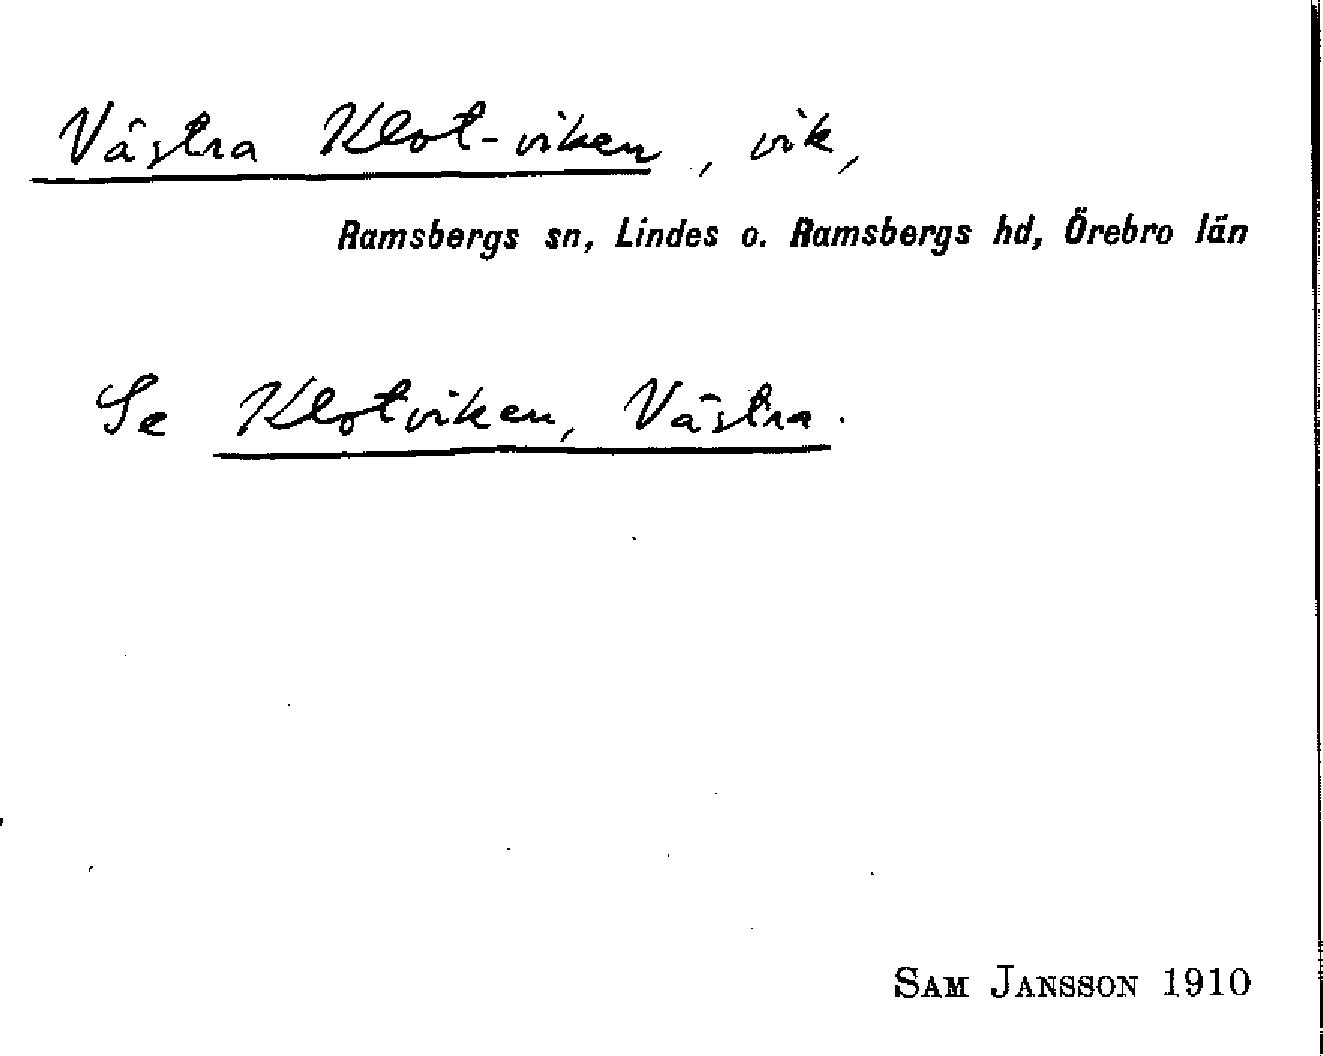 Västra Klot-viken, vik,
Ramsbergs sn, Lindes o. Ramsbergs hd, Örebro län
Se Klotviken, Västra.
SAM JANSSON 1910